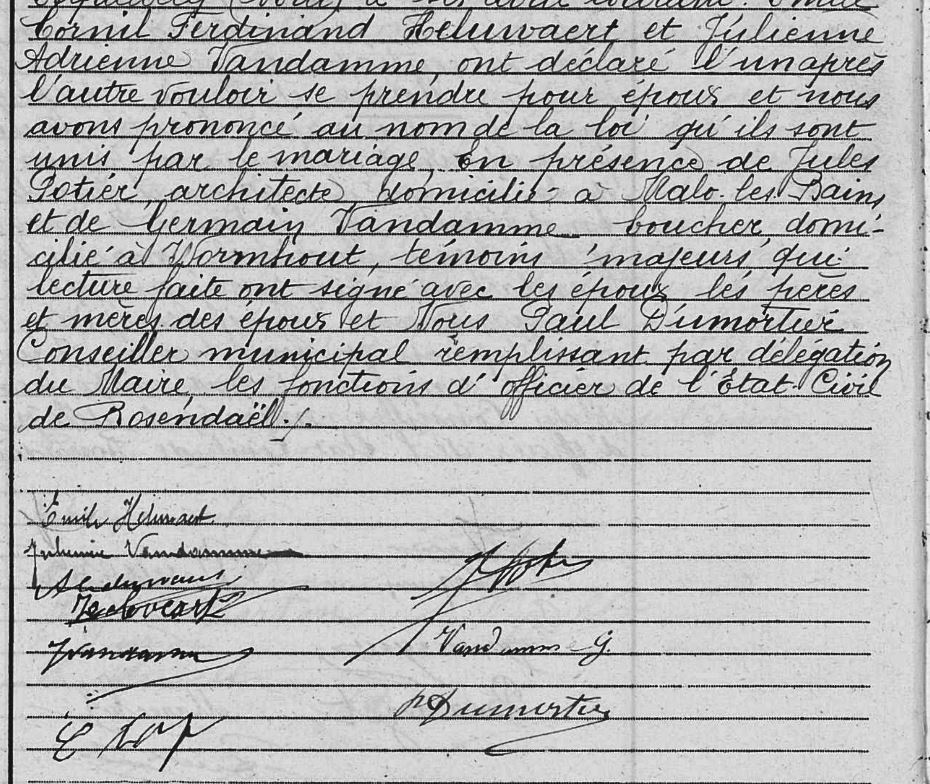 Cornil Ferdinand Heluwaert et Julienne
Adrienne Vandamme, ont déclaré l'un après
l'autre vouloir se prendre pour époux et nous
avons prononcé au nom de la loi qu'ils sont
unis par le mariage, En présence de Jules
Potier, architecte, domicilié à Malo-les-Bains
et de Germain Vandamme boucher, domi-
cilié à Wormhout, témoins majeurs, qui
lecture faite ont signé avec les époux, les pères
et mères des époux et Nous Paul Dumortier
Conseiller municipal remplissant par délégation
du Maire, les fonctions d'officier de l'État-Civil
de Rosendaël ./.
Emile Heluwaert
Julienne Vandamme
Vandamme
Vandamme G.
P Dumortier